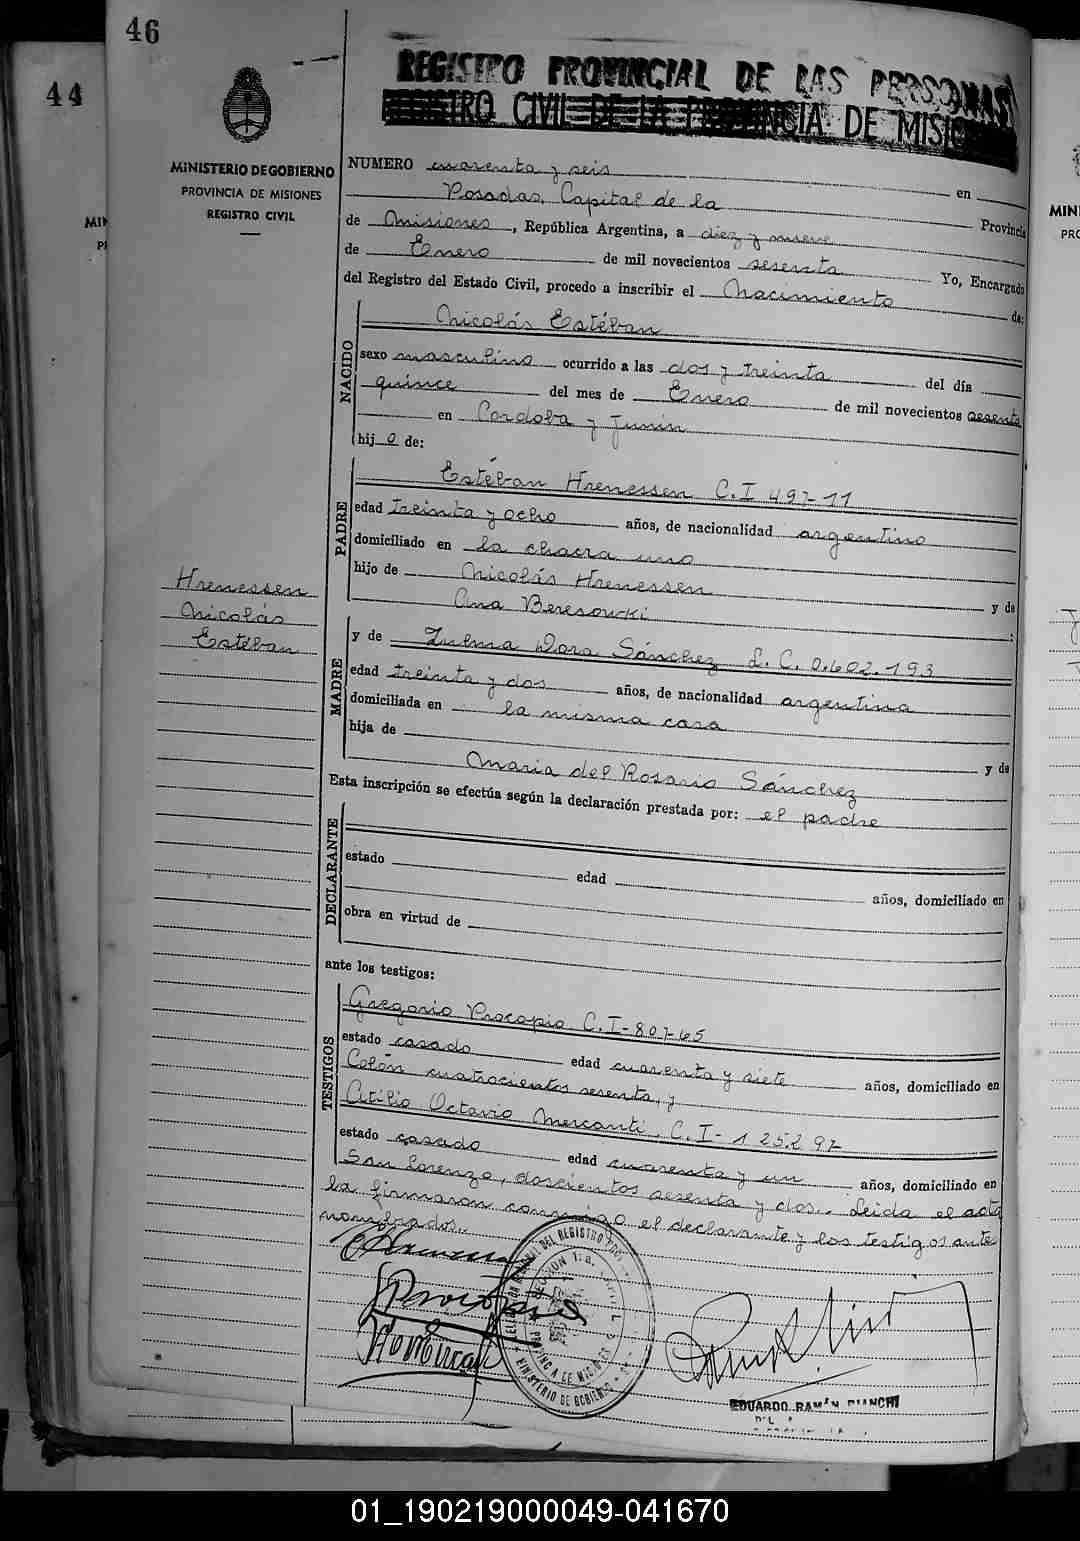 46
44
MINISTERIO DE GOBIERNO
PROVINCIA DE MISIONES
REGISTRO CIVIL
REGISTRO PROVINCIAL DE LAS PERSONAS
REGISTRO CIVIL DE LA PROVINCIA DE MISIONES
NUMERO cuarenta y seis en
Posadas, Capital de la Provincia
de Misiones, República Argentina, a diez y nueve
de Enero de mil novecientos sesenta Yo, Encargado
del Registro del Estado Civil, procedo a inscribir el Nacimiento de:
NACIDO
Nicolás Estéban
sexo masculino ocurrido a las dos y treinta del día
quince del mes de Enero de mil novecientos sesenta
en Cordoba y Junin
hijo de:
PADRE
Estéban Hrenessen C.I 497-11
edad treinta y ocho años, de nacionalidad argentino
domiciliado en la chacra uno
hijo de Nicolás Hrenessen y de
Ana Beresowki :
Hrenessen
Nicolás
Estéban
MADRE
y de Zulma Dora Sánchez L.C. 0.602.193
edad treinta y dos años, de nacionalidad argentina
domiciliada en la misma casa
hija de y de
Maria del Rosario Sánchez
Esta inscripción se efectúa según la declaración prestada por: el padre
DECLARANTE
estado edad años, domiciliado en
obra en virtud de
ante los testigos:
TESTIGOS
Gregorio Procopio C.I-807-65
estado casado edad cuarenta y siete años, domiciliado en
Colón cuatrocientos sesenta, y
Atilio Octavio Mercanti, C.I- 1 252 97
estado casado edad cuarenta y un años, domiciliado en
San Lorenzo, doscientos sesenta y dos.. Leida el acta
la firmaron conmigo el declarante y los testigos ante
nombrados..
MINISTERIO DE GOBIERNO
EDUARDO RAMÓN BIANCHI
01_190219000049-041670